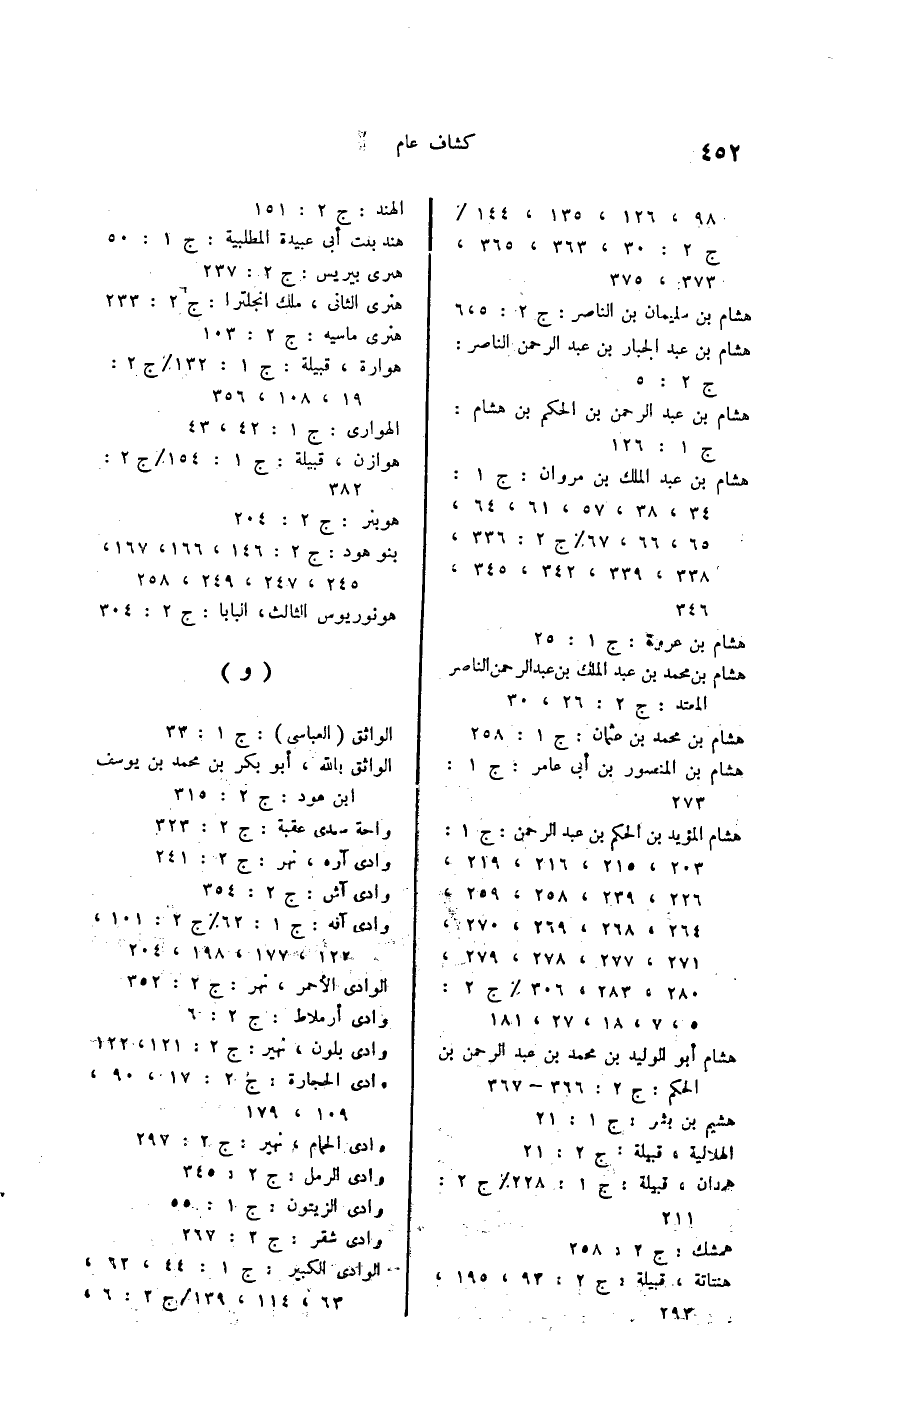 ٤٥٢
كشاف عام
٩٨ ، ١٢٦ ، ١٣٥ ، ١٤٤ ٪
ج ٢ : ٣٠ ، ٣٦٣ ، ٣٦٥ ،
٣٧٣ ، ٣٧٥
هشام بن سليمان بن الناصر : ج ٢ : ٥،٦
هشام بن عبد الجبار بن عبد الرحمن الناصر :
ج ٢ : ٥
هشام بن عبد الرحمن بن الحكم بن هشام :
ج ١ : ١٢٦
هشام بن عبد الملك بن مروان : ج ١ :
٣٤ ، ٣٨ ، ٥٧ ، ٦١ ، ٦٤ ،
٦٥ ، ٦٦ ، ٦٧٪ ج ٢ : ٣٣٦ ،
٣٣٨ ، ٣٣٩ ، ٣٤٢ ، ٣٤٥ ،
٣٤٦
هشام بن عروة : ج ١ : ٢٥
هشام بن محمد بن عبد الملك بن عبد الرحمن الناصر
المعتد : ج ٢ : ٢٦ ، ٣٠
هشام بن محمد بن عثمان : ج ١ : ٢٥٨
هشام بن المنصور بن أبى عامر : ج ١ :
٢٧٣
هشام المؤيد بن الحكم بن عبد الرحمن : ج ١ :
٢٠٣ ، ٢١٥ ، ٢١٦ ، ٢١٩ ،
٢٢٦ ، ٢٣٩ ، ٢٥٨ ، ٢٥٩ ،
٢٦٤ ، ٢٦٨ ، ٢٦٩ ، ٢٧٠ ،
٢٧١ ، ٢٧٧ ، ٢٧٨ ، ٢٧٩ ،
٢٨٠ ، ٢٨٣ ، ٣٠٦ ٪ ج ٢ :
٥ ، ٧ ، ١٨ ، ٢٧ ، ١٨١
هشام أبو الوليد بن محمد بن عبد الرحمن بن
الحكم : ج ٢ : ٣٦٦ – ٣٦٧
هشيم بن بشر : ج ١ : ٢١
الهلالية ، قبيلة : ج ٢ : ٢١
همدان ، قبيلة : ج ١ : ٢٢٨٪ ج ٢ :
٢١١
همشك : ج ٢ : ٢٥٨
هنتاتة ، قبيلة : ج ٢ : ٩٣ ، ١٩٥ ،
٢٩٣
الهند : ج ٢ : ١٥١
هند بنت أبى عبيدة المطلبية : ج ١ : ٥٠
هنرى بيريس : ج ٢ : ٢٣٧
هنرى الثانى ، ملك انجلترا : ج ٢ : ٢٣٣
هنرى ماسيه : ج ٢ : ١٠٣
هوارة ، قبيلة : ج ١ : ١٣٢٪ ج ٢ :
١٩ ، ١٠٨ ، ٣٥٦
الهوارى : ج ١ : ٤٢ ، ٤٣
هوازن ، قبيلة : ج ١ : ١٥٤٪ ج ٢ :
٣٨٢
هوبنر : ج ٢ : ٢٠٤
بنو هود : ج ٢ : ١٤٦ ، ١٦٦ ، ١٦٧،
٢٤٥ ، ٢٤٧ ، ٢٤٩ ، ٢٥٨
هونوريوس الثالث، البابا : ج ٢ : ٣٠٤
( و )
الواثق ( العباسى ) : ج ١ : ٣٣
الواثق بالله ، أبو بكر بن محمد بن يوسف
ابن هود : ج ٢ : ٣١٥
واحة سدى عقبة : ج ٢ : ٣٢٣
وادى آره ، نهر : ج ٢ : ٢٤١
وادى آش : ج ٢ : ٣٥٤
وادى آنه : ج ١ : ٦٢٪ ج ٢ : ١٠١ ،
١٢٢ ، ١٧٧ ، ١٩٨ ، ٢٠٤
الوادى الأحمر ، نهر : ج ٢ : ٣٥٢
وادى أرملاط : ج ٢ : ٦
وادى بلون ، نهير : ج ٢ : ١٢١، ١٢٢
وادى الحجارة : ج ٢ : ١٧ ، ٩٠ ،
١٠٩ ، ١٧٩
وادى الحمام ، نهير : ج ٢ : ٢٩٧
وادى الرمل : ج ٢ : ٣٤٥
وادى الزيتون : ج ١ : ٥٥
وادى شقر : ج ٢ : ٢٦٧
الوادى الكبير : ج ١ : ٤٤ ، ٦٢ ،
٦٣ ، ١١٤ ، ١٣٩/ج ٢ : ٦ ،